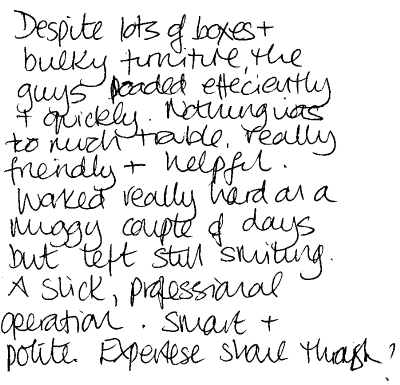 Despite lots of boxes +
bulky furniture, the
guys loaded effeciently
+ quickly. Nothing was
to much trouble, really
friendly + helpful.
Worked really hard on a
muggy couple of days
but left still smiling.
A slick, professional
operation. Smart +
polite. Expertese shone through!